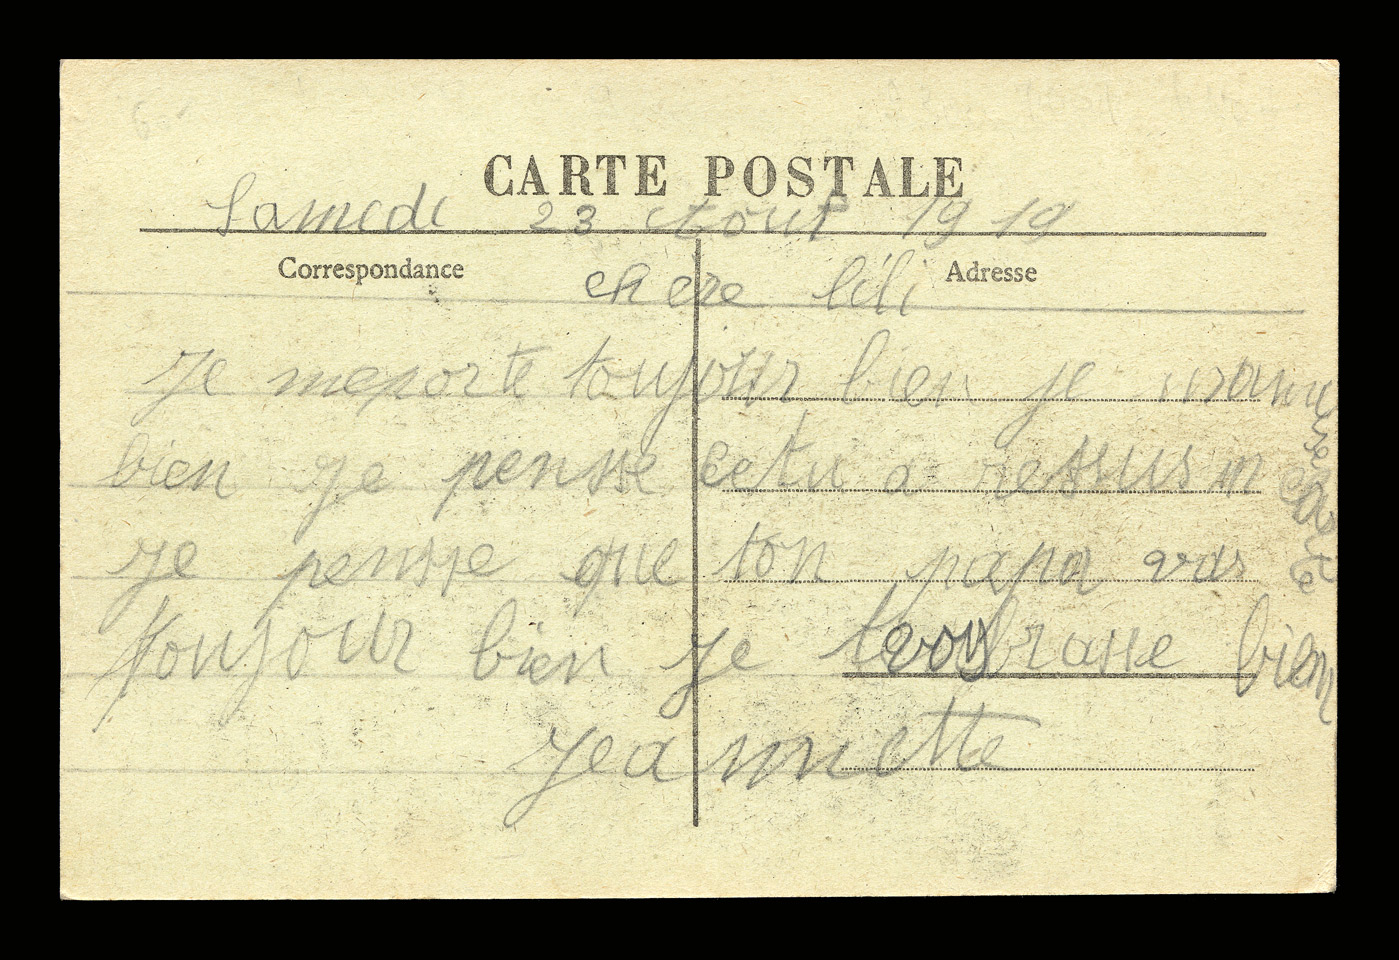 CARTE POSTALE
Samedi 23 Aout 1919
Correspondance
Adresse
chere lili
Je meporte toujour bien je mamuse
bien je pensse cetu a ressus m carte
je pensse que ton papa vas
toujour bien je bien
Jeannette